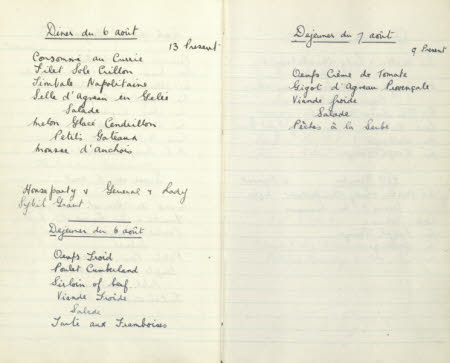 Diner du 6 août
13 Present
Consommé au Currie
Filet Sole Crillon
Timbale Napolitaine
Selle d'Agneau en Gelée
Salade
Melon Glacé Cendrillon
Petits Gateaux
Mousse d'Anchois
Houseparty & General & Lady
Sybil Grant
Dejeuner du 6 août
Oeufs Froid
Poulet Cumberland
Sirloin of beef
Viande Froide
Salade
Tarte aux Framboises
Dejeuner du 7 août
9 Present
Oeufs Crème de Tomate
Gigot d'Agneau Provençale
Viande froide
Salade
à la